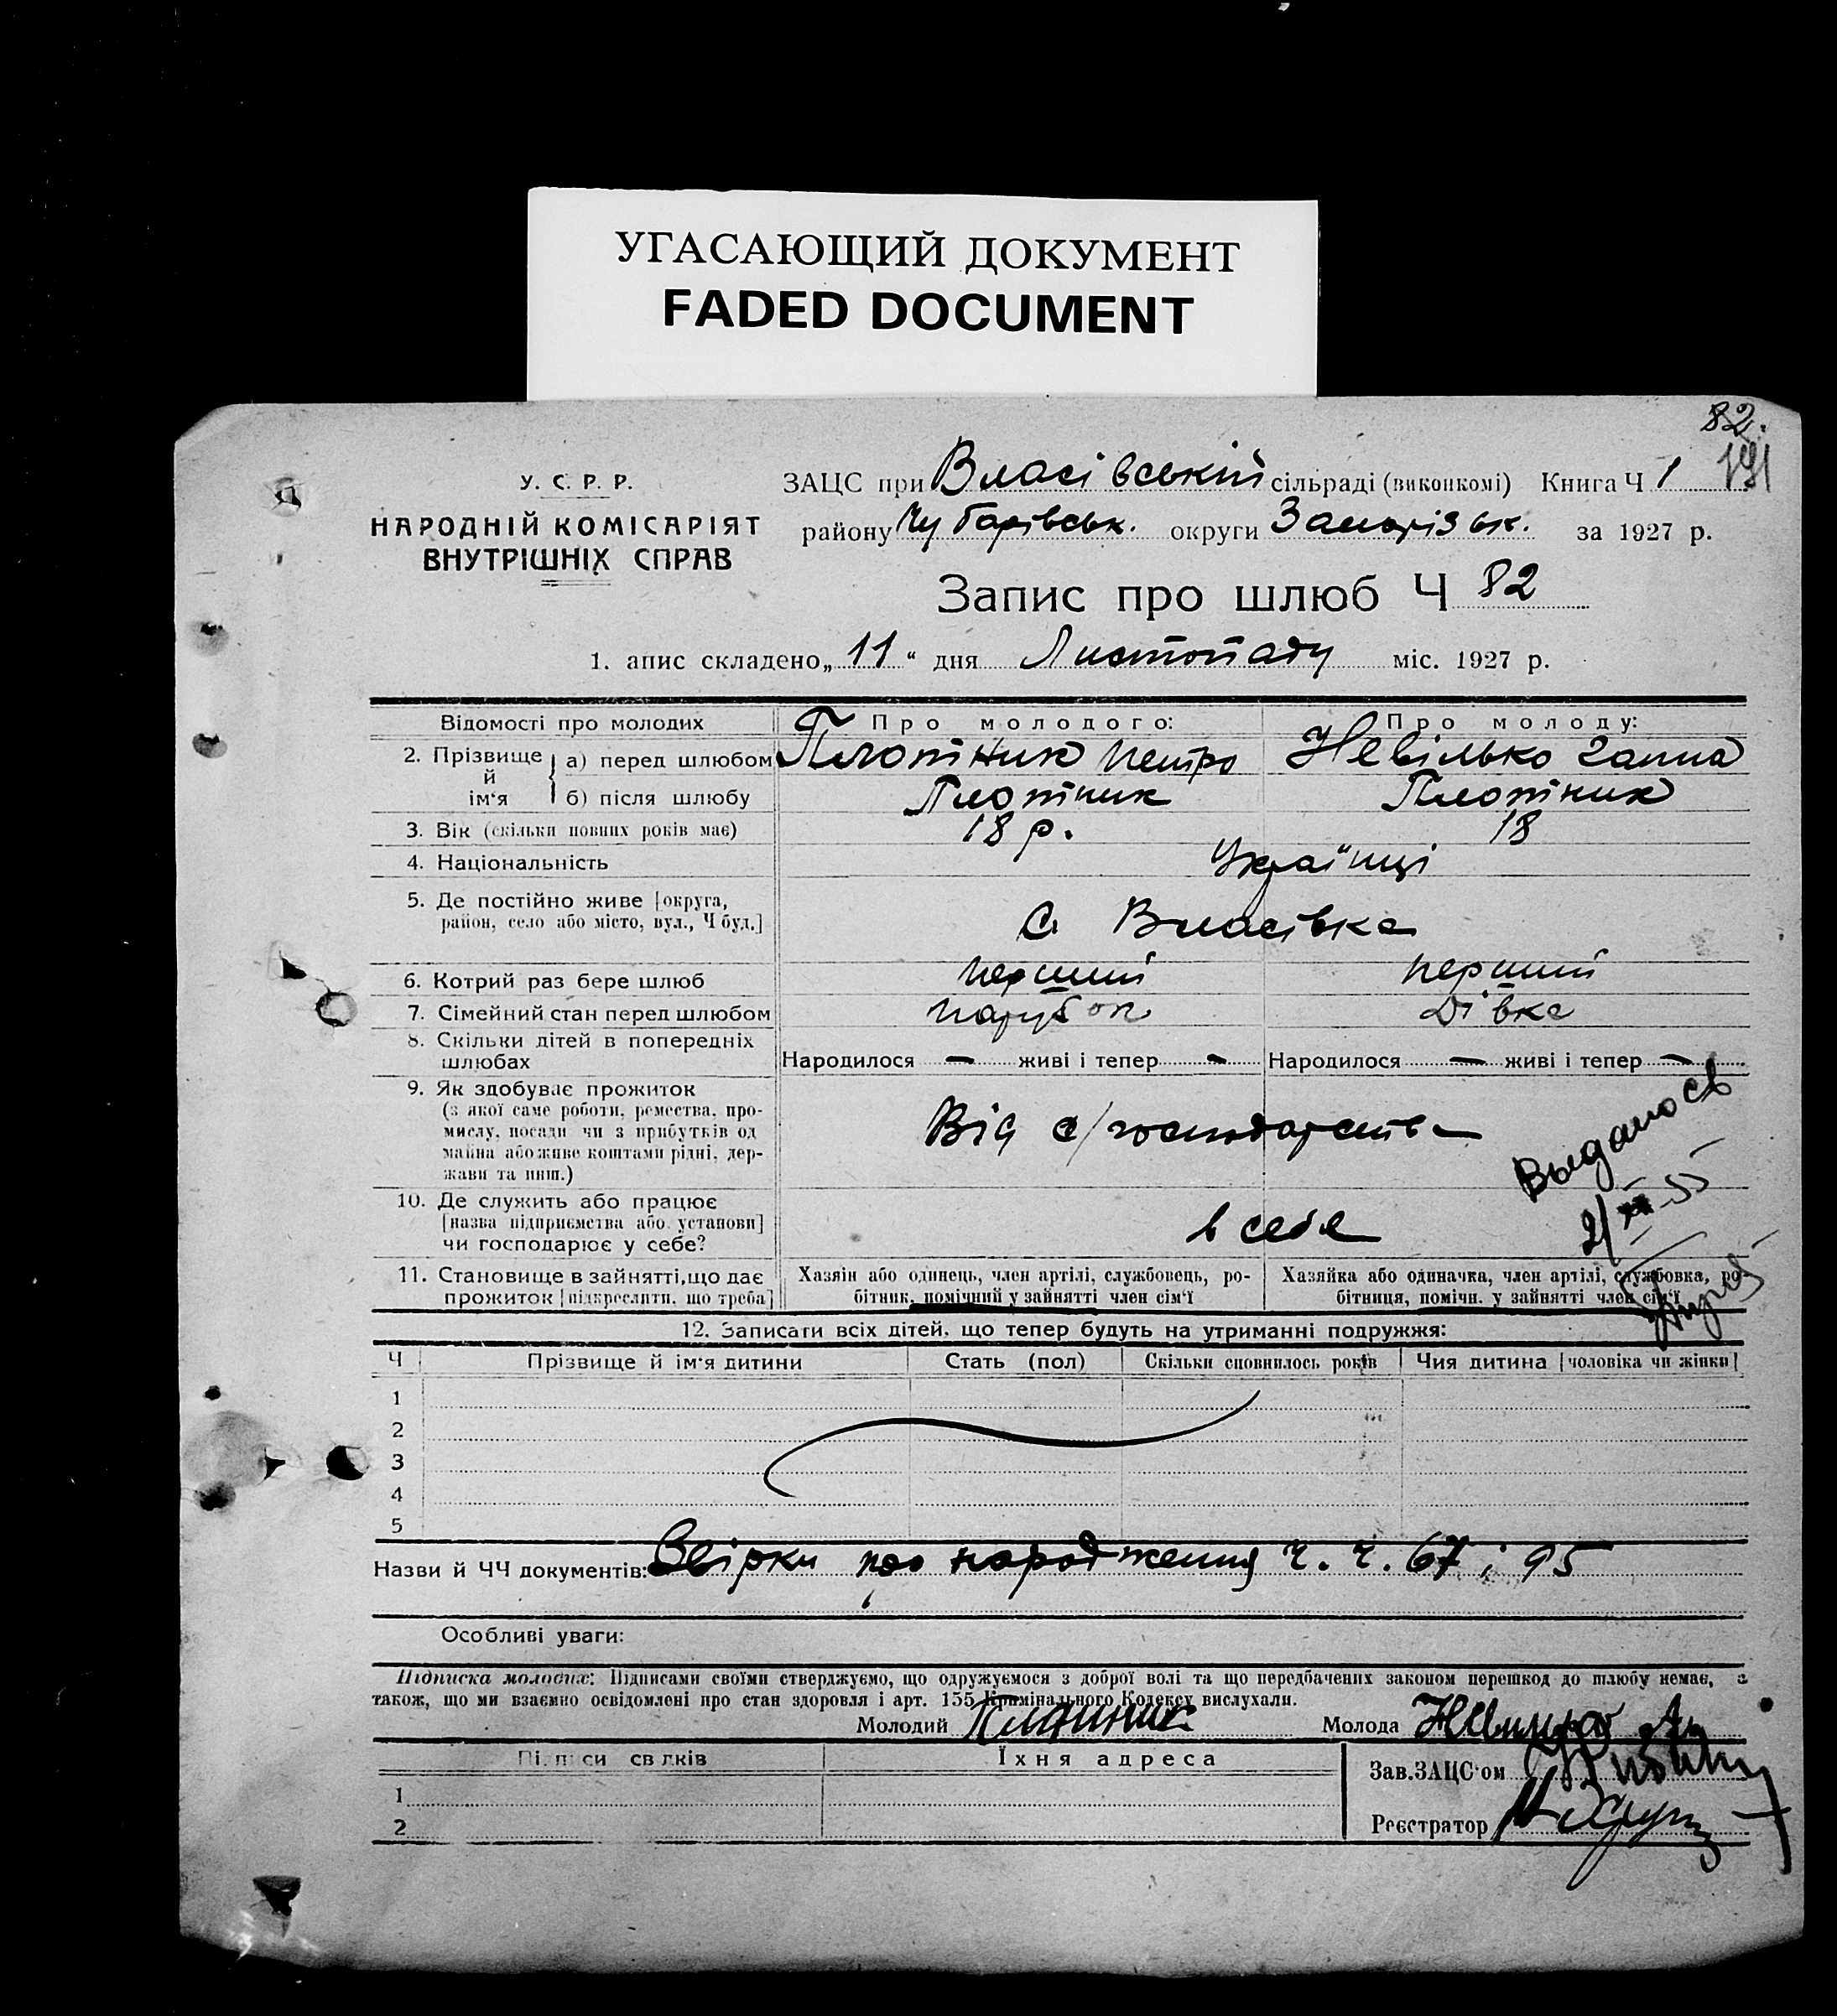 УГАСАЮЩИЙ ДОКУМЕНТ
FADED DOCUMENT
82.
191
У. С. Р. Р.
НАРОДНІЙ КОМІСАРІЯТ
ВНУТРІШНІХ СПРАВ
ЗАЦС при Власівській сільраді (виконкомі) Книга Ч 1
району Чубарівськ. округи Запорізьк. за 1927 р.
Запис про шлюб Ч 82
1. апис складено „ 11 “ дня Листопаду міс. 1927 р.
Відомості про молодих Про молодого: Про молоду:
2. Прізвище й ім‘я а) перед шлюбом Плотник Петро Невілько Ганна
б) після шлюбу Плотник Плотник
3. Вік (скільки повних років має) 18 р. 18
4. Національність Українці
5. Де постійно живе [округа,
район, село або місто, вул., Ч буд.] с. Власівка
6. Котрий раз бере шлюб перший перший
7. Сімейний стан перед шлюбом парубок дівка
8. Скільки дітей в попередніх
шлюбах Народилося — живі і тепер - Народилося — живі і тепер —
9. Як здобуває прожиток
(з якої саме роботи, ремества, про-
мислу, посади чи з прибутків од
майна або живе коштами рідні, дер-
жави та инш.)
Від с/господарства
Выдано св
2/XII-55
10. Де служить або працює
[назва підприємства або установи]
чи господарює у себе?
в себе
11. Становище в зайнятті, що дає
прожиток [підкреслити, що треба]
Хазяїн або одинець, член артілі, службовець, ро-
бітник, помічний у зайнятті член сім‘ї
Хазяйка або одиначка, член артілі, службовка, ро-
бітниця, помічн. у зайнятті член сім‘ї
12. Записати всіх дітей, що тепер будуть на утриманні подружжя:
Ч Прізвище й ім‘я дитини Стать (пол) Скільки сповнилось років Чия дитина [чоловіка чи жінки]
1
2
3
4
5
Назви й ЧЧ документів: Звірки про народження ч. ч. 67 і 95
Особливі уваги:
Підписка молодих: Підписами своїми стверджуємо, що одружуємося з доброї волі та що передбачених законом перешкод до шлюбу немає, а
також, що ми взаємно освідомлені про стан здоровля і арт. 155 Кримінального Кодексу вислухали.
Молодий Плотник Молода
Підписи свідків Їхня адреса
Зав.ЗАЦС‘ом
1
2
Реєстратор